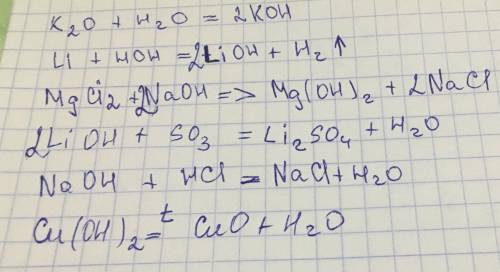 K₂O + H₂O = 2KOH
Li + HOH = 2LiOH + H₂ ↑
MgCl₂ + 2NaOH => Mg(OH)₂ + 2NaCl
2LiOH + SO₃ = Li₂SO₄ + H₂O
NaOH + HCl = NaCl + H₂O
Cu(OH)₂ =ᵗ CuO + H₂O